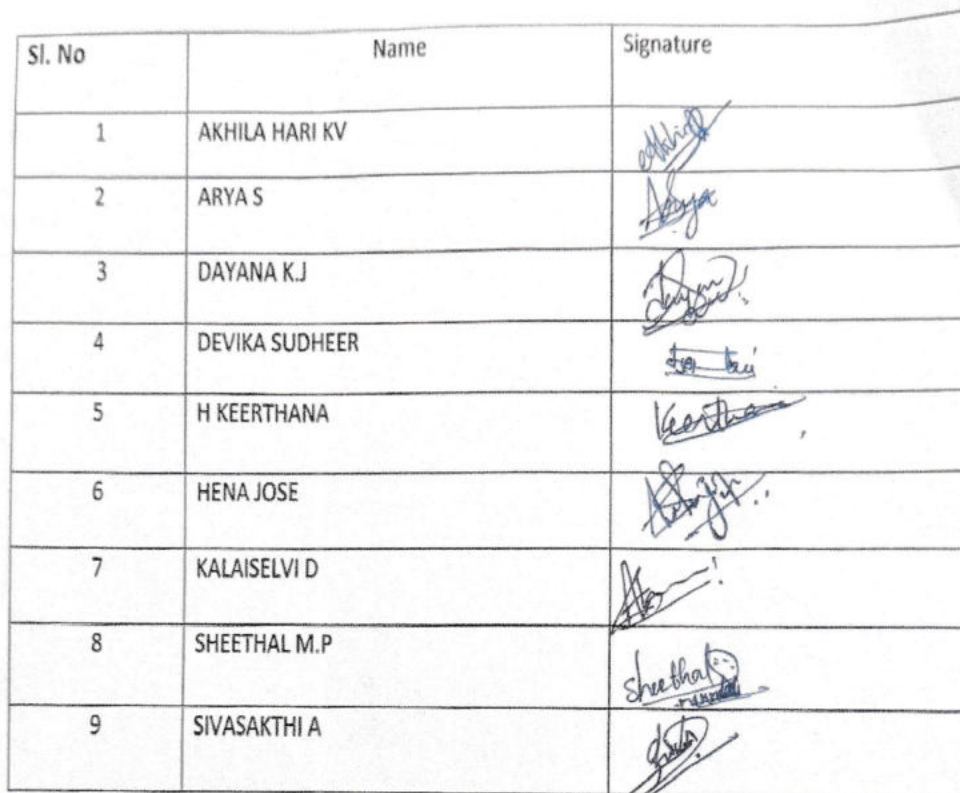 Sl. No Name Signature
1 AKHILA HARI KV Akhila
2 ARYA S Arya
3 DAYANA K.J
4 DEVIKA SUDHEER
5 H KEERTHANA Keerthana
6 HENA JOSE
7 KALAISELVI D
8 SHEETHAL M.P Sheethal
9 SIVASAKTHI A